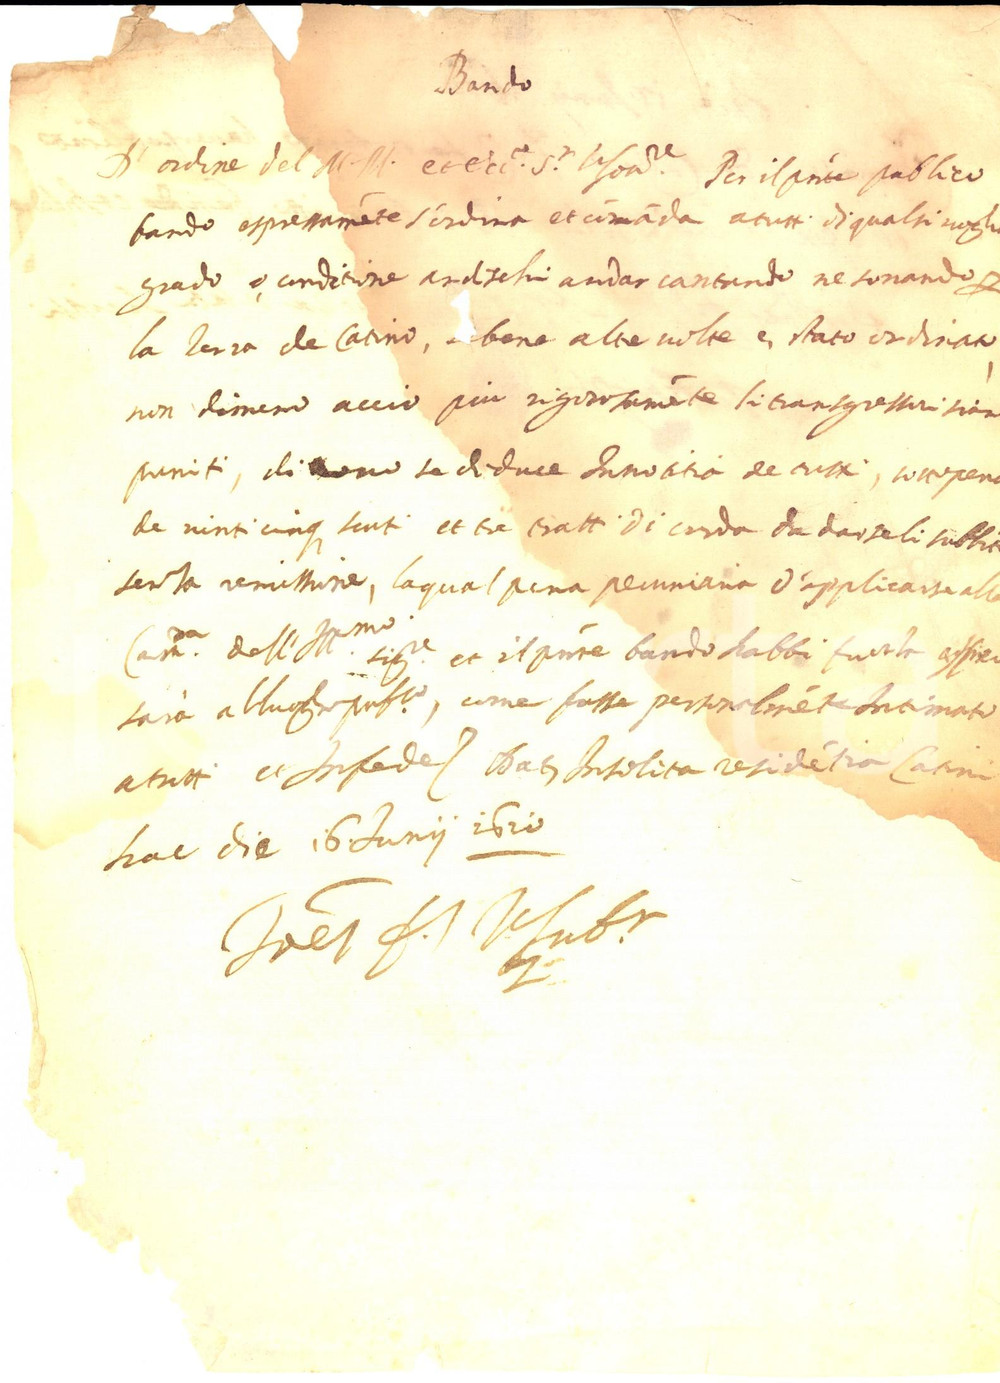 Bando
D'ordine del M. Ill. et ecc.te S.r Per il pnte publico
bando espressaméte s'ordina et cómāda a tutti di qualsi vogli
grado o conditione andar cantando ne sonando
la Terra de Catino, se bene alte volte e, stato ordinato
non dimeno accio piu rigorosaméte li transgressori sian
puniti, di novo se deduce In notitia de tutti, sotto pena
de vinticinq scuti et tre tratti di corda da darseli subbit
senza remissione, la qual pena pecuniaria d'applicarse alla
Cam.ra dell' Ill.mo Sig.re et il pnte bando habbi forza affisso
sara al luogho pub.co, come fosse personalméte Intimato
a tutti et In fede Dat, In solita residétia Catini
hac die 16 Junij 1610